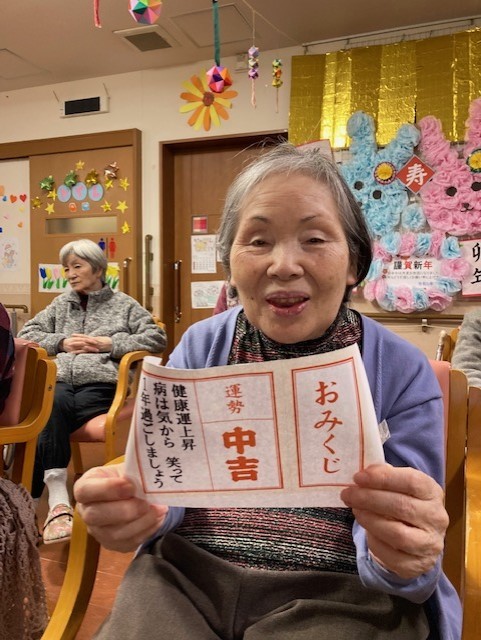 おみくじ
運勢
中吉
健康運上昇
病は気から 笑って
1年過ごしましょう
寿
謹賀新年
卯年